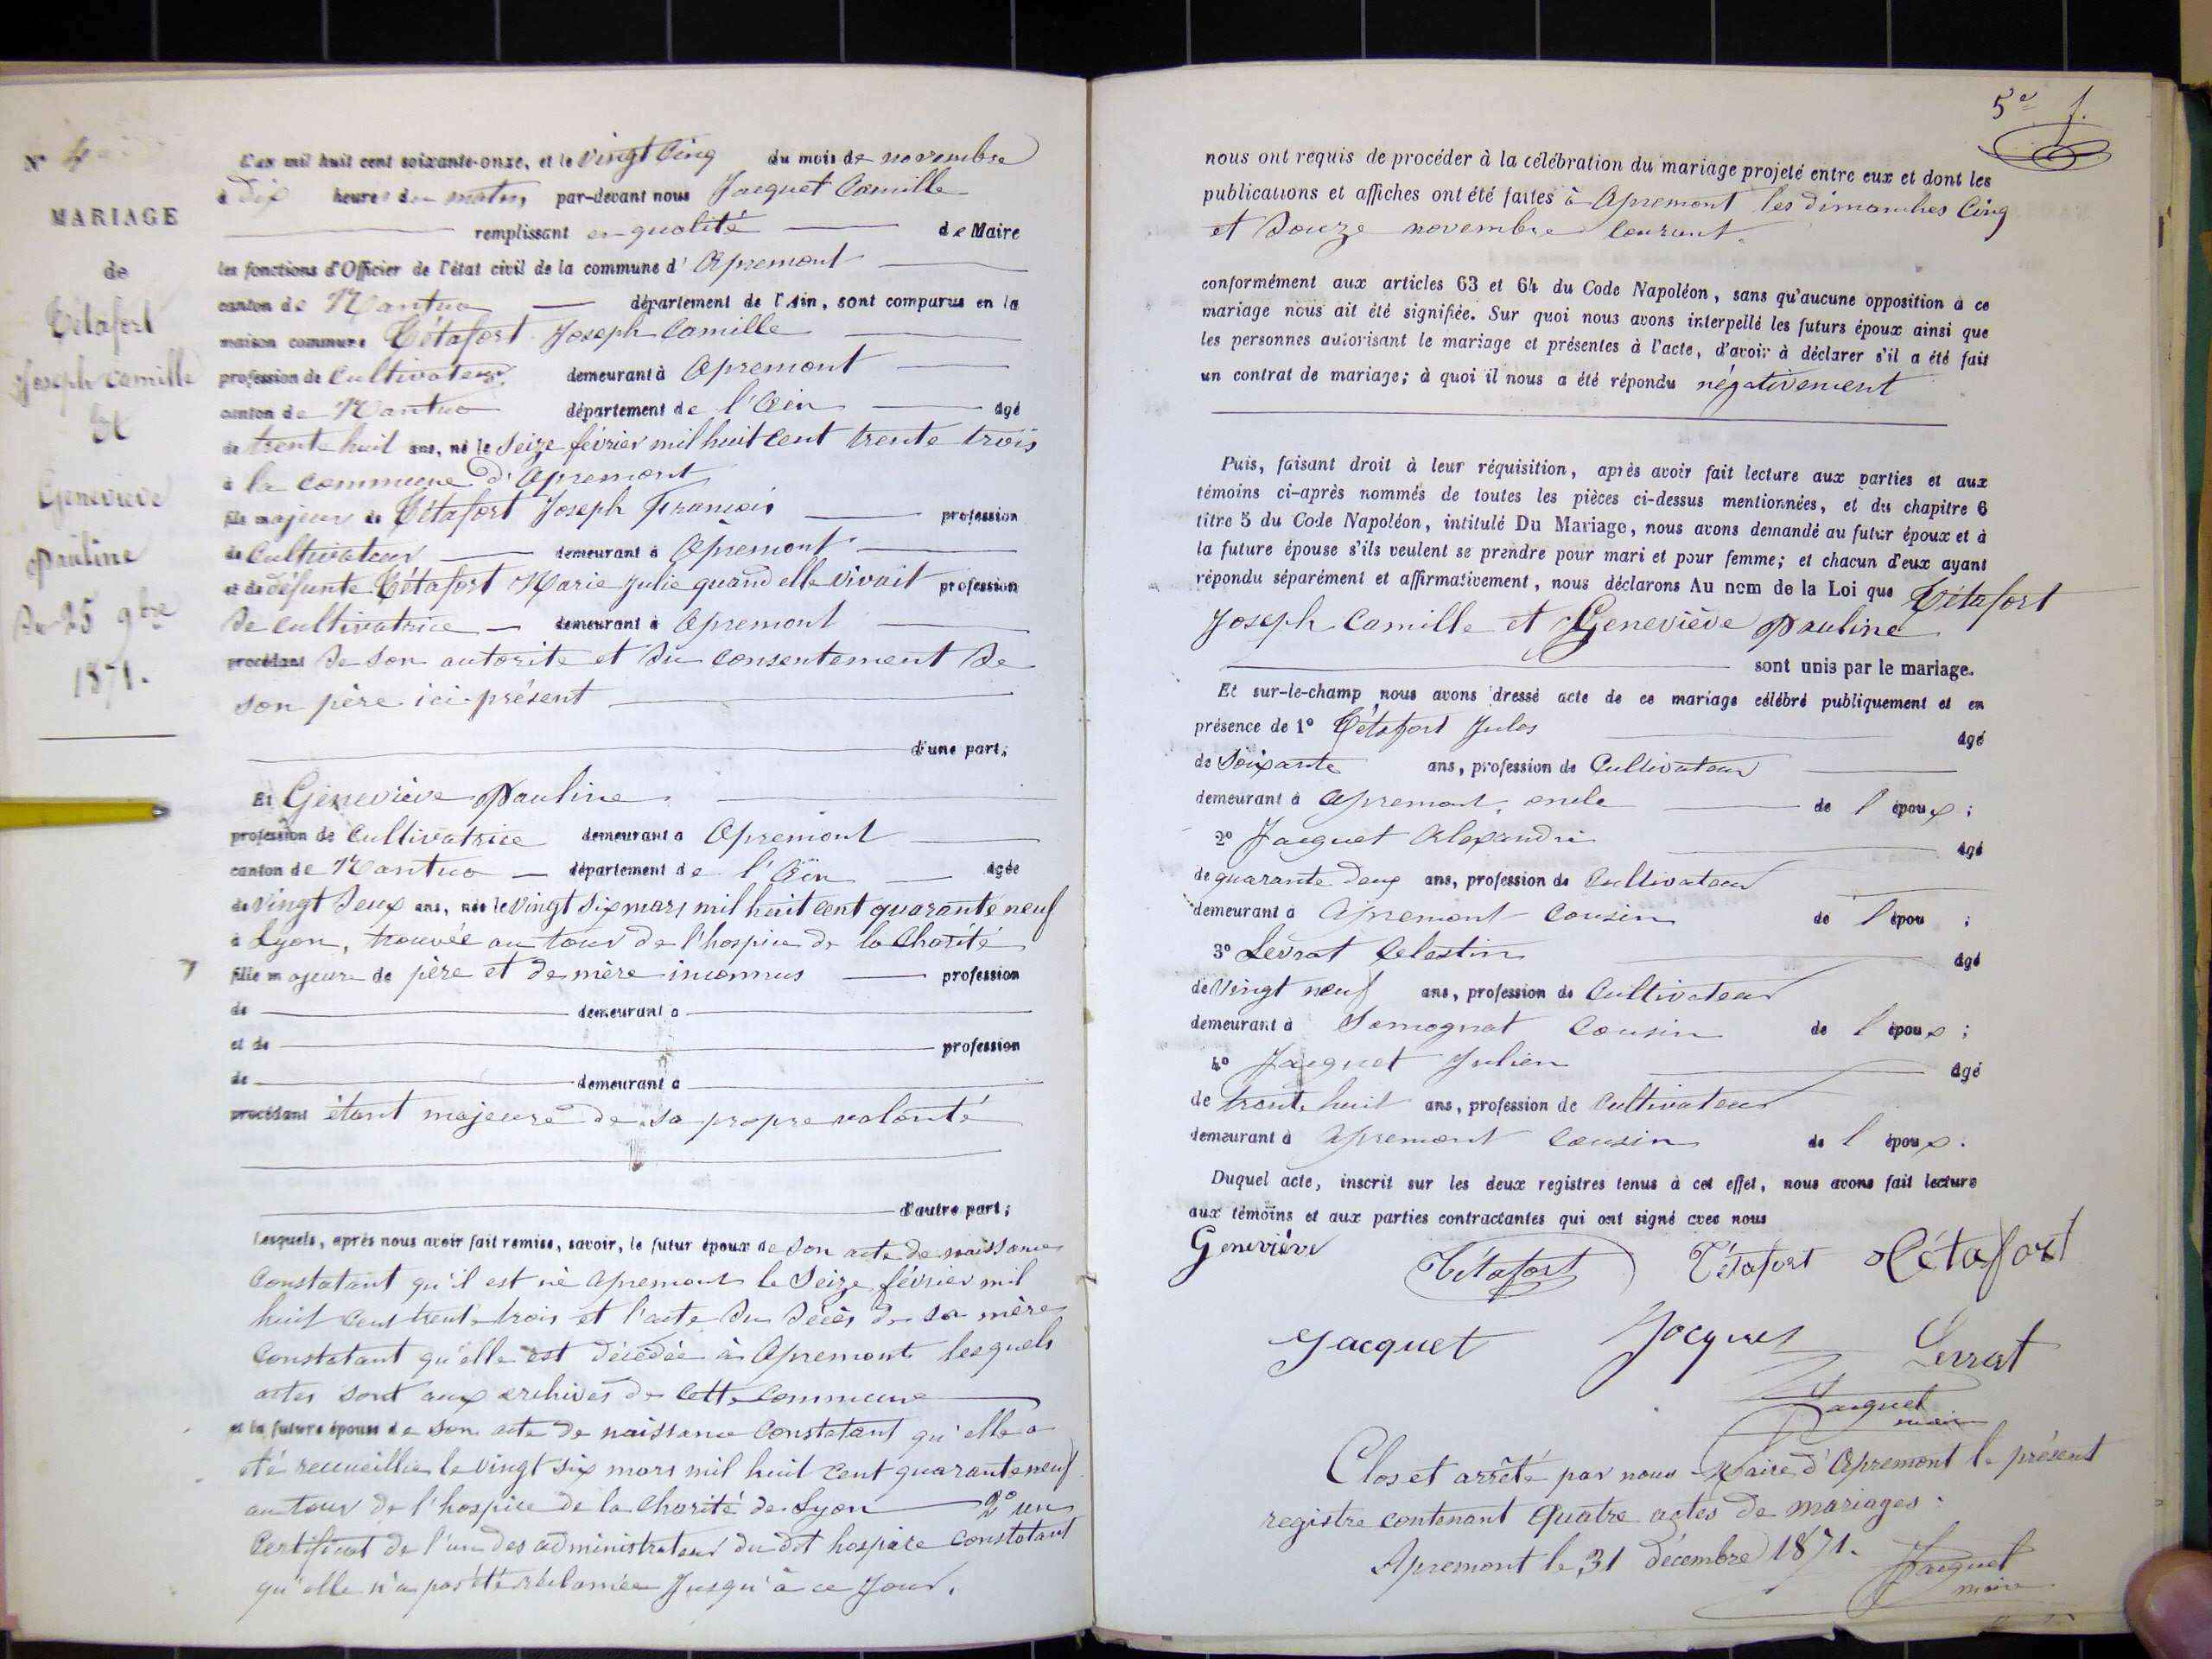 N° 4
MARIAGE
de
Tétafort
Joseph Camille
Et
Geneviève
Pauline
Du 25 9bre
1871.
L'an mil huit cent soixante-onze, et le vingt Cinq du mois de novembre
à Dix heures du matin, par-devant nous Jacquet Camille
remplissant en qualité de Maire
les fonctions d'Officier de l'état civil de la commune d' Apremont
canton de Nantua département de l'Ain, sont comparus en la
maison commune Tétafort Joseph Camille
profession de Cultivateur demeurant à Apremont
canton de Nantua département de l'Ain âgé
de trente huit ans, né le Seize février mil huit Cent trente trois
à la Commune d'Apremont
fils majeur de Tétafort Joseph François profession
de Cultivateur demeurant à Apremont
et de défunte Tétafort Marie Julie quand elle vivait profession
De Cultivatrice demeurant à Apremont
procédant De Son autorité et Du Consentement De
son père ici présent
d'une part;
Et Geneviève Pauline
profession de Cultivatrice demeurant à Apremont
canton de Nantua département de l'Ain âgée
de Vingt Deux ans, née le Vingt Six mars mil huit cent quarante neuf
à Lyon, trouvée au tour de l'hospice de la Charité
fille majeure de père et de mère inconnus profession
de demeurant à
et de profession
de demeurant à
procédant étant majeure de sa propre volonté
d'autre part;
Lesquels, après nous avoir fait remise, savoir, le futur époux de Son acte de naissance
Constatant qu'il est né Apremont le Seize février mil
huit Cent trente trois et l'acte Du Décès de sa mère
Constatant qu'elle est décédée à Apremont lesquels
actes sont aux archives de Cette Commune
et la future épouse de son acte de naissance Constatant qu'elle a
été recueillie le vingt six mars mil huit cent quarante neuf
au tour de l'hospice de la Charité de Lyon 2° un
Certificat de l'un des administrateurs du dit hospice constatant
qu'elle n'a pas été réclamée Jusqu'à ce Jour.
5e f.
nous ont requis de procéder à la célébration du mariage projeté entre eux et dont les
publications et affiches ont été faites à Apremont les dimanches Cinq
et Douze novembre Courant.
conformément aux articles 63 et 64 du Code Napoléon, sans qu'aucune opposition à ce
mariage nous ait été signifiée. Sur quoi nous avons interpellé les futurs époux ainsi que
les personnes autorisant le mariage et présentes à l'acte, d'avoir à déclarer s'il a été fait
un contrat de mariage; à quoi il nous a été répondu négativement
Puis, faisant droit à leur réquisition, après avoir fait lecture aux parties et aux
témoins ci-après nommés de toutes les pièces ci-dessus mentionnées, et du chapitre 6
titre 5 du Code Napoléon, intitulé Du Mariage, nous avons demandé au futur époux et à
la future épouse s'ils veulent se prendre pour mari et pour femme; et chacun d'eux ayant
répondu séparément et affirmativement, nous déclarons Au nom de la Loi que Tétafort
Joseph Camille et Geneviève Pauline
sont unis par le mariage.
Et sur-le-champ nous avons dressé acte de ce mariage célébré publiquement et en
présence de 1° Tétafort Jules âgé
de Soixante ans, profession de Cultivateur
demeurant à Apremont, oncle de l'époux;
2° Jacquet Alexandre âgé
de quarante Deux ans, profession de Cultivateur
demeurant à Apremont Cousin de l'épou ;
3° Levrat Celestin âgé
de Vingt neuf ans, profession de Cultivateur
demeurant à Samognat Cousin de l'époux;
4° Jacquet Julien âgé
de trente huit ans, profession de Cultivateur
demeurant à Apremont Cousin de l'époux.
Duquel acte, inscrit sur les deux registres tenus à cet effet, nous avons fait lecture
aux témoins et aux parties contractantes qui ont signé avec nous
Geneviève Tétafort Tétafort Tétafort
Jacquet Jacquet Levrat
Jacquet
maire
Clos et arrêté par nous Maire d'Apremont le présent
registre contenant Quatre actes de mariages.
Apremont le 31 décembre 1871. Jacquet
maire